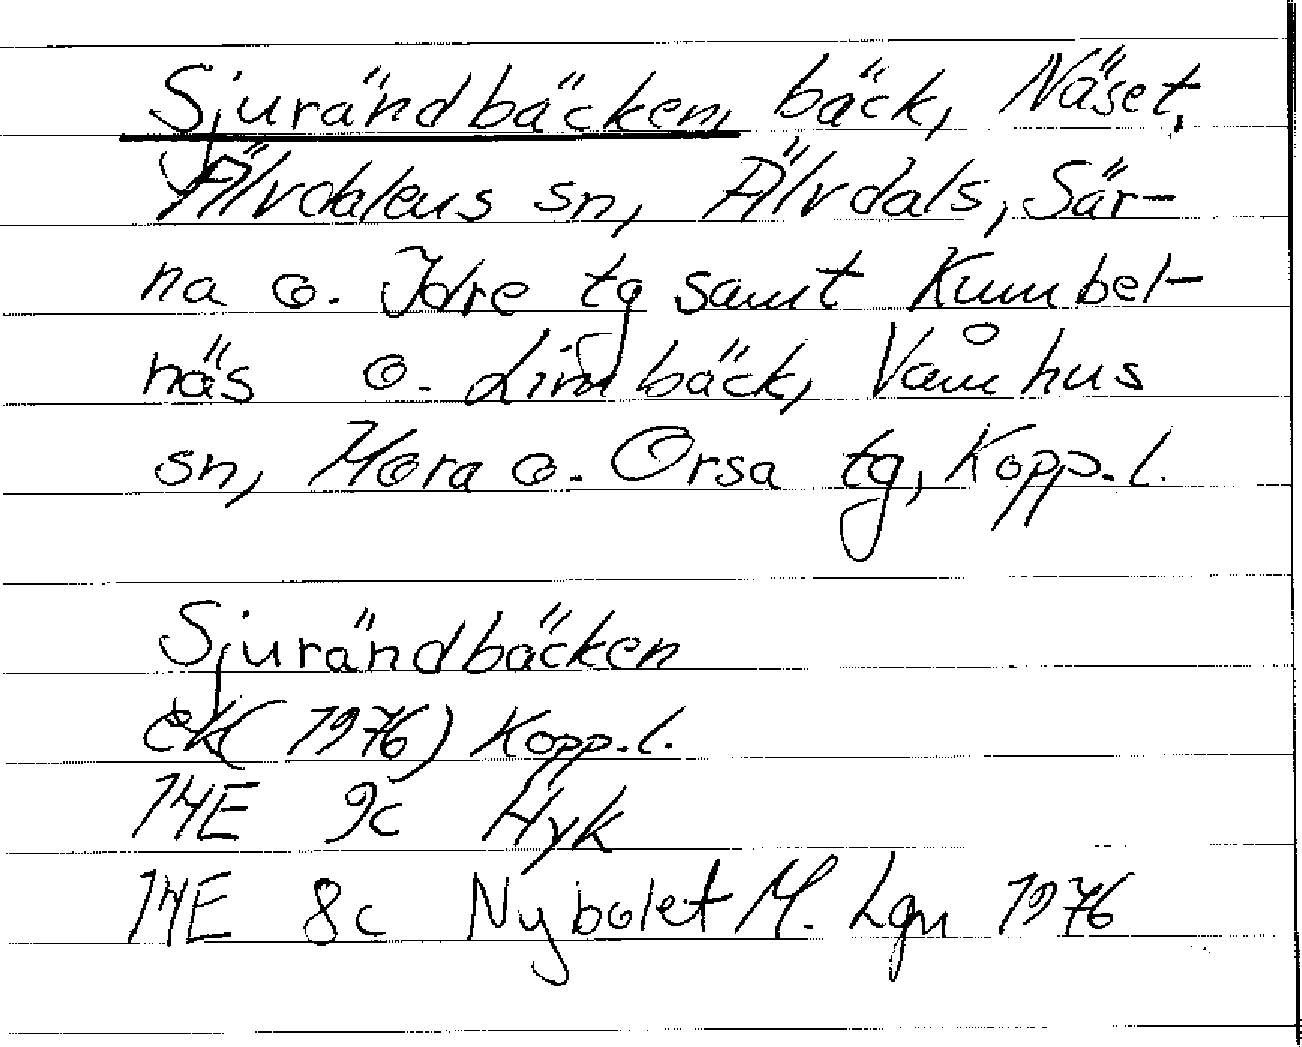 Sjurändbäcken, bäck, Näset,
Älvdalens sn, Älvdals, Sär-
na o. Idre tg samt Kumbel-
näs o. Limbäck, Våmhus
sn, Mora o. Orsa tg, Kopp. l.
Sjurändbäcken
ek (1976) Kopp. l.
14E 9c Hyk
14E 8c Nybolet M. Lgn 1976